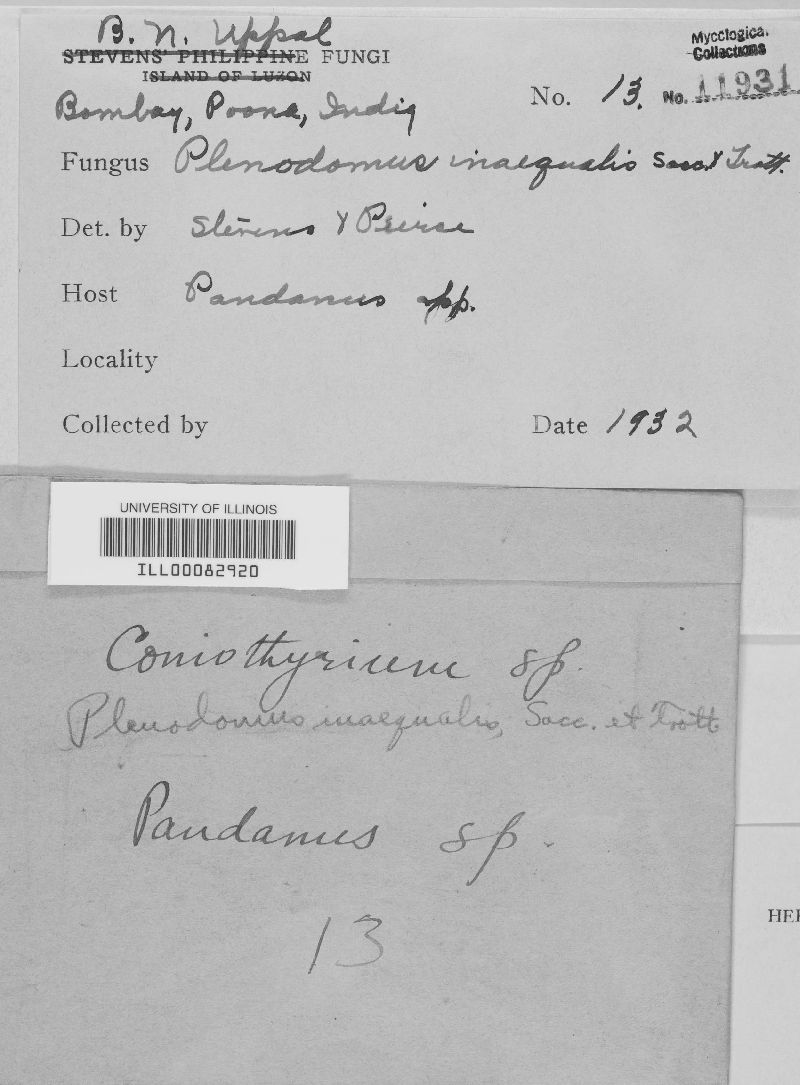 B. N. Uppal
STEVENS' PHILIPPINE FUNGI
ISLAND OF LUZON
Mycologica.
Collections
Bombay, Poona, India
No. 13.
No. 11931
Fungus Plenodomus inaequalis Sacc. & Trott.
Det. by Stevens & Peirce
Host Pandanus spp.
Locality
Collected by
Date 1932
UNIVERSITY OF ILLINOIS
ILL00082920
Coniothyrium sp.
Plenodomus inaequalis, Sacc. et Trott
Pandanus sp.
13
HER